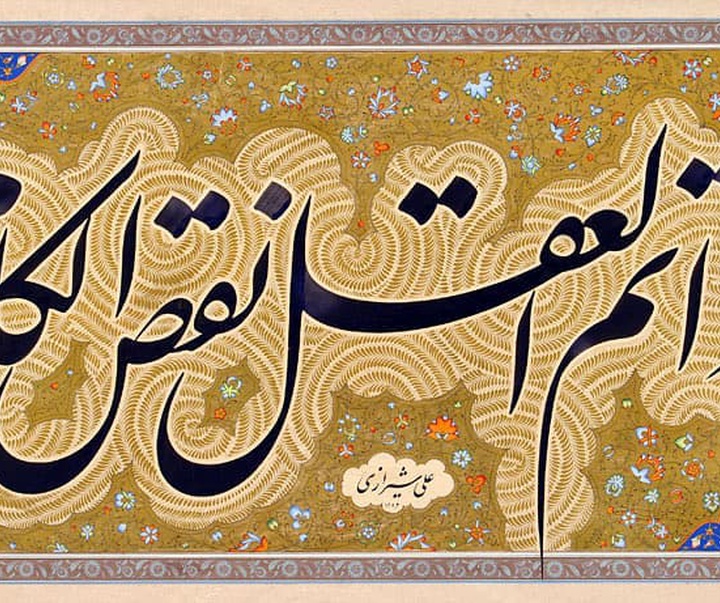 تم العقل نقص الکلا
علی شیرازی